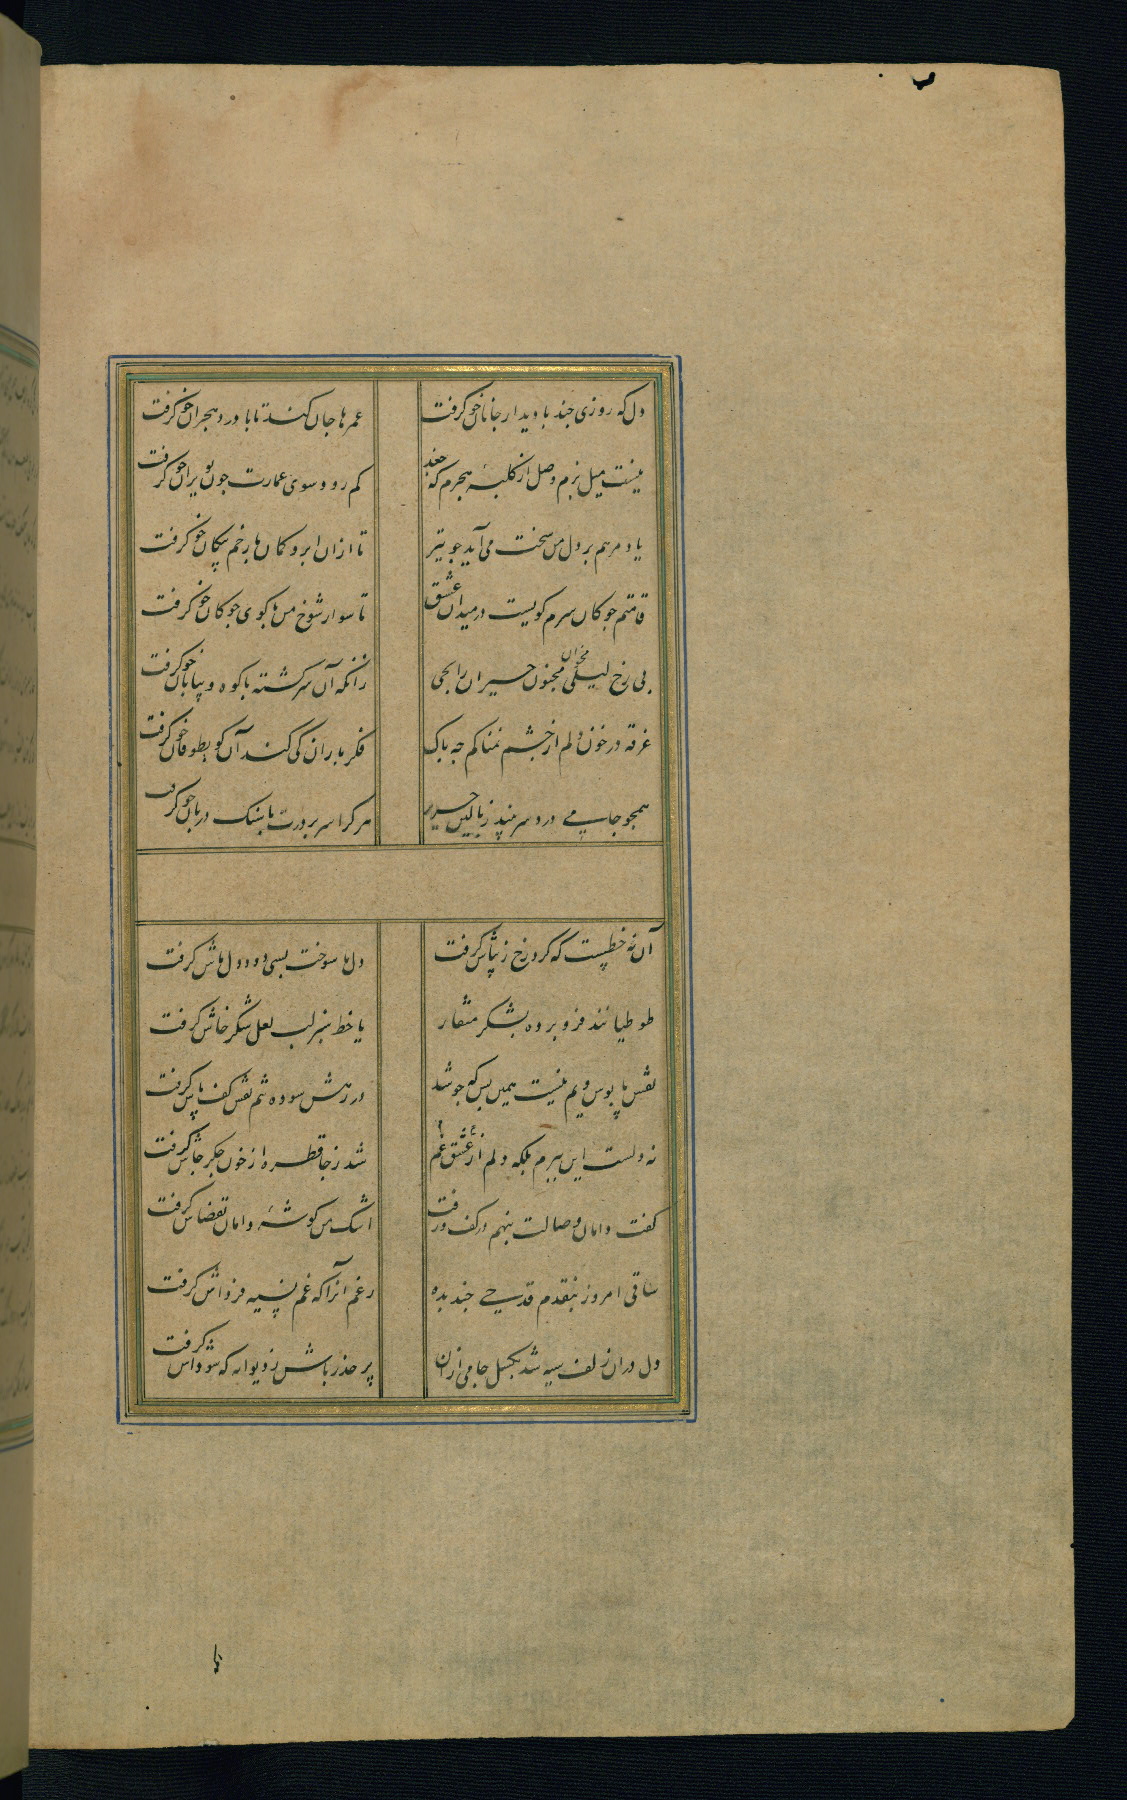 دل که روزی چند با دیدار جانان خو گرفت
عمرها جان کند تا با درد هجران خو گرفت
نیست میل بزم وصل از کلبهٔ هجرم که جغد
کم رود سوی عمارت چون بویران خو گرفت
یاد مرهم بر دل من سخت می آید چو تیر
تا ازان ابرو کمان با زخم پیکان خو گرفت
قامتم چوکان سرم کویست در میدان عشق
تا سوار شوخ من با کوی چوکان خو گرفت
بی رخ لیلی مخوان مجنون حیران را بحی
زانکه آن سرکشته با کوه و بیابان خو گرفت
غرقه در خون دلم از چشم نمناکم چه باک
فکر باران کی کند آن کو بطوفان خو گرفت
همچو جامی درد سر بیند ز بالین حریر
هر کرا سر بر درت با سنک دربان خو گرفت
آن نه خطیست که کرد رخ زیباش گرفت
دل ما سوخت بسی دود دل ماش گرفت
طوطیانند فرو برده بشکر منقار
یا خط سبز لب لعل شکرخاش گرفت
نقش پابوس ویم نیست همین بس که چو شد
در رهش سوده تنم نقش کف پاش گرفت
نه دلست این ببرم بلکه دلم از عشق غم
شد ز جا قطرهٔ از خون جکر جاش گرفت
گفت دامان وصالت بنهم در کف و رفت
اشک من کوشهٔ دامان تقضاش گرفت
ساقی امروز بنقدم قدحی چند بده
رغم آنرا که غم نسیه فرداش گرفت
دل دران زلف سیه شد بکسل جامی ازان
پر حذر باش ز دیوانه که سوداش گرفت